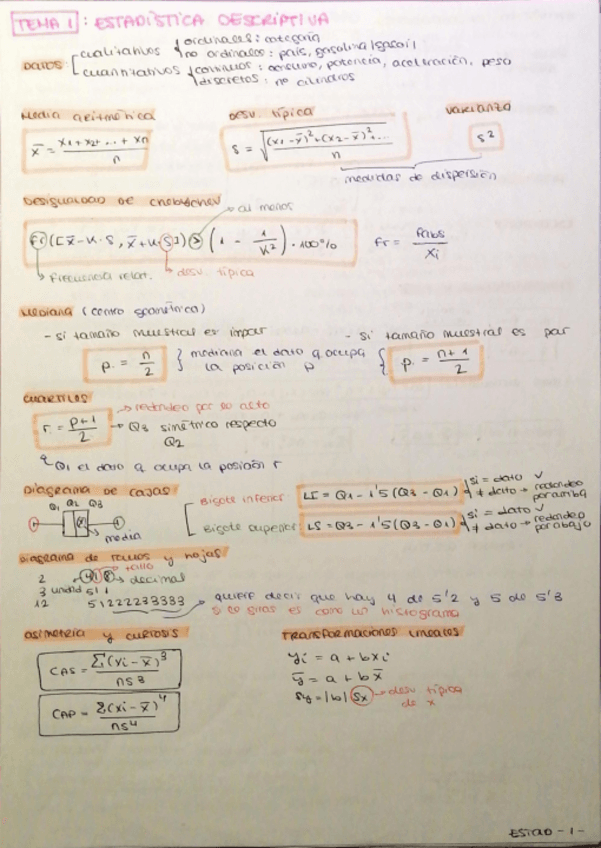 TEMA 1 : ESTADÍSTICA DESCRIPTIVA
DATOS: cualitativos ordinales: categoría
no ordinales: país, gasolina/gasoil
cuantitativos continuos: consumo, potencia, aceleración, peso
discretos: nº cilindros
Media aritmética Desv. típica Varianza
x̄ = x1+x2+...+xn / n s = √((x1-x̄)²+(x2-x̄)²+... / n) s²
medidas de dispersión
DESIGUALDAD DE CHEBYSCHEV al menos
Fr([x̄-k·s, x̄+k·s]) ≥ (1 - 1/k²)·100% Fr = Fabs / Xi
Frecuencia relat. desv. típica
Mediana (centro geométrico)
- si tamaño muestral es impar - si tamaño muestral es par
p = n/2 mediana el dato q ocupa la posición p p = n+1 / 2
CUARTILES
→ redondeo por lo alto
r = p+1 / 2 → Q3 simétrico respecto
Q2
Q1 el dato q ocupa la posición r
Diagrama de cajas
Q1 Q2 Q3
media
Bigote inferior LI = Q1 - 1'5(Q3 - Q1) si = dato ✓
≠ dato → redondeo por arriba
Bigote superior: LS = Q3 - 1'5(Q3 - Q1) si = dato ✓
≠ dato → redondeo por abajo
Diagrama de tallos y hojas
tallo
2 4 1 8 → decimal
3 unidad 5 1 1
12 5 1222233333 quiere decir que hay 4 de 5'2 y 5 de 5'3
si lo giras es como un histograma
asimetría y curtosis TRANSFORMACIONES LINEALES
CAS = Σ(xi-x̄)³ / ns3 yi = a + bxi
ȳ = a + bx̄
CAP = Σ(xi-x̄)⁴ / ns4 sy = |b| sx → desv típica de x
ESTAD -1-